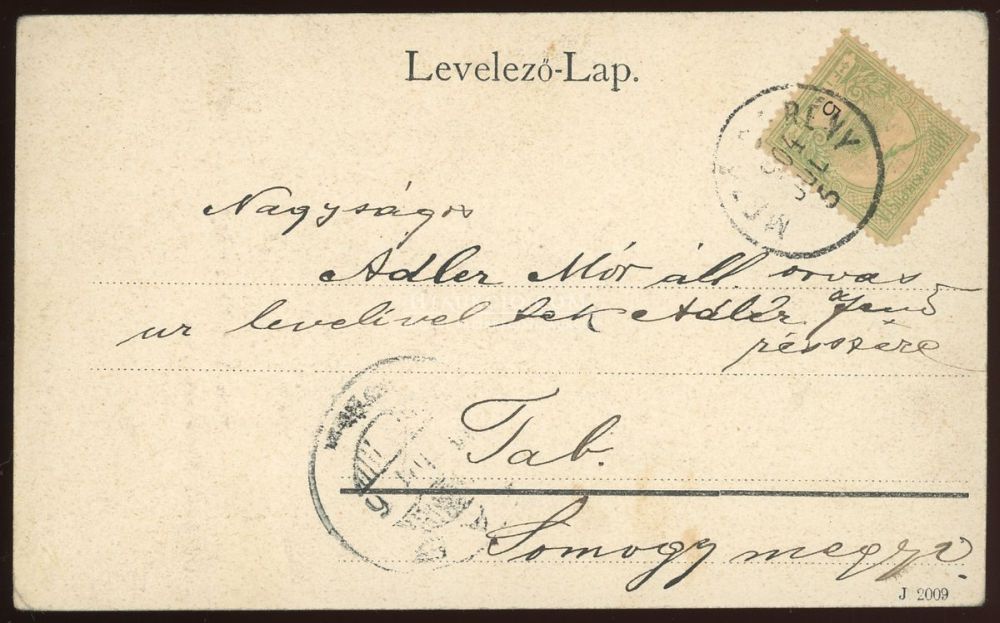 Levelező-Lap.
5
SZT
Nagyságos
Adler Mór áll. orvas
ur levelivel tek Adler Jenő
részére
Tab.
Somogy megye.
J 2009